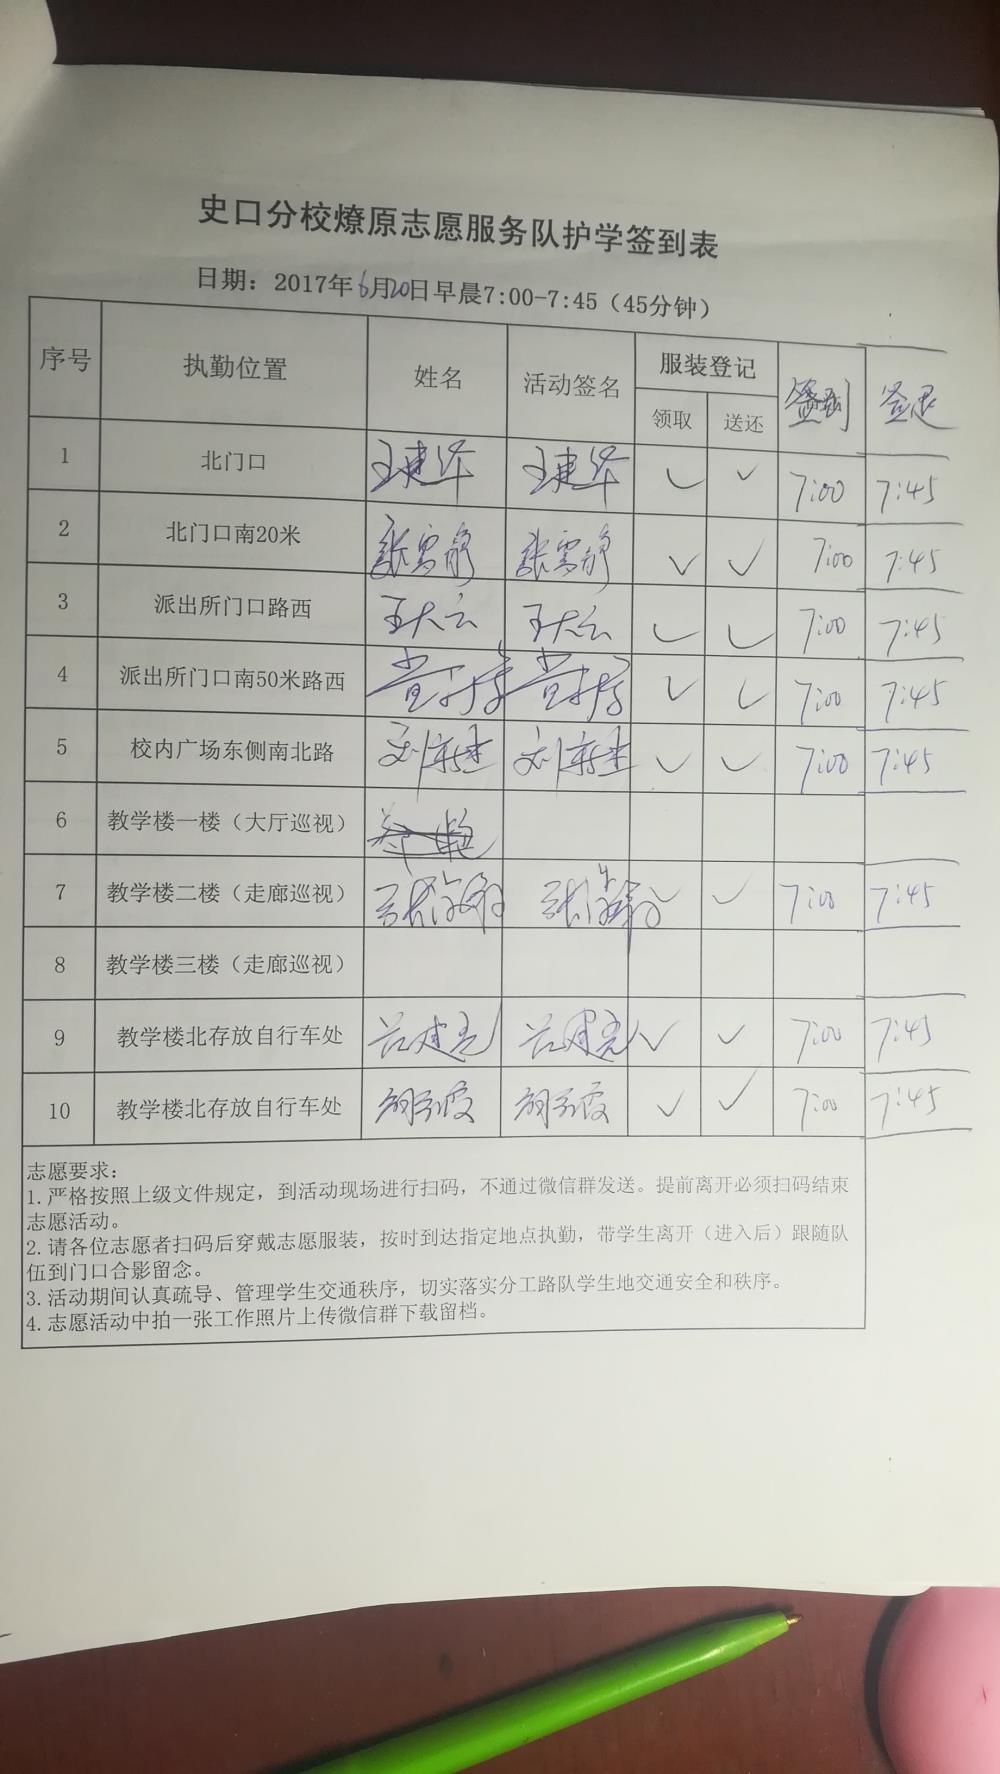 史口分校燎原志愿服务队护学签到表
日期：2017年6月20日早晨7:00-7:45（45分钟）
序号 执勤位置 姓名 活动签名 服装登记 签到 签退
领取 送还
1 北门口 王建华 王建华 ✓ ✓ 7:00 7:45
2 北门口南20米 张雪静 张雪静 ✓ ✓ 7:00 7:45
3 派出所门口路西 王大云 王大云 ✓ ✓ 7:00 7:45
4 派出所门口南50米路西 ✓ ✓ 7:00 7:45
5 校内广场东侧南北路 刘新建 刘新建 ✓ ✓ 7:00 7:45
6 教学楼一楼（大厅巡视）
7 教学楼二楼（走廊巡视） ✓ ✓ 7:00 7:45
8 教学楼三楼（走廊巡视）
9 教学楼北存放自行车处 ✓ ✓ 7:00 7:45
10 教学楼北存放自行车处 ✓ ✓ 7:00 7:45
志愿要求：
1.严格按照上级文件规定，到活动现场进行扫码，不通过微信群发送。提前离开必须扫码结束
志愿活动。
2.请各位志愿者扫码后穿戴志愿服装，按时到达指定地点执勤，带学生离开（进入后）跟随队
伍到门口合影留念。
3.活动期间认真疏导、管理学生交通秩序，切实落实分工路队学生地交通安全和秩序。
4.志愿活动中拍一张工作照片上传微信群下载留档。